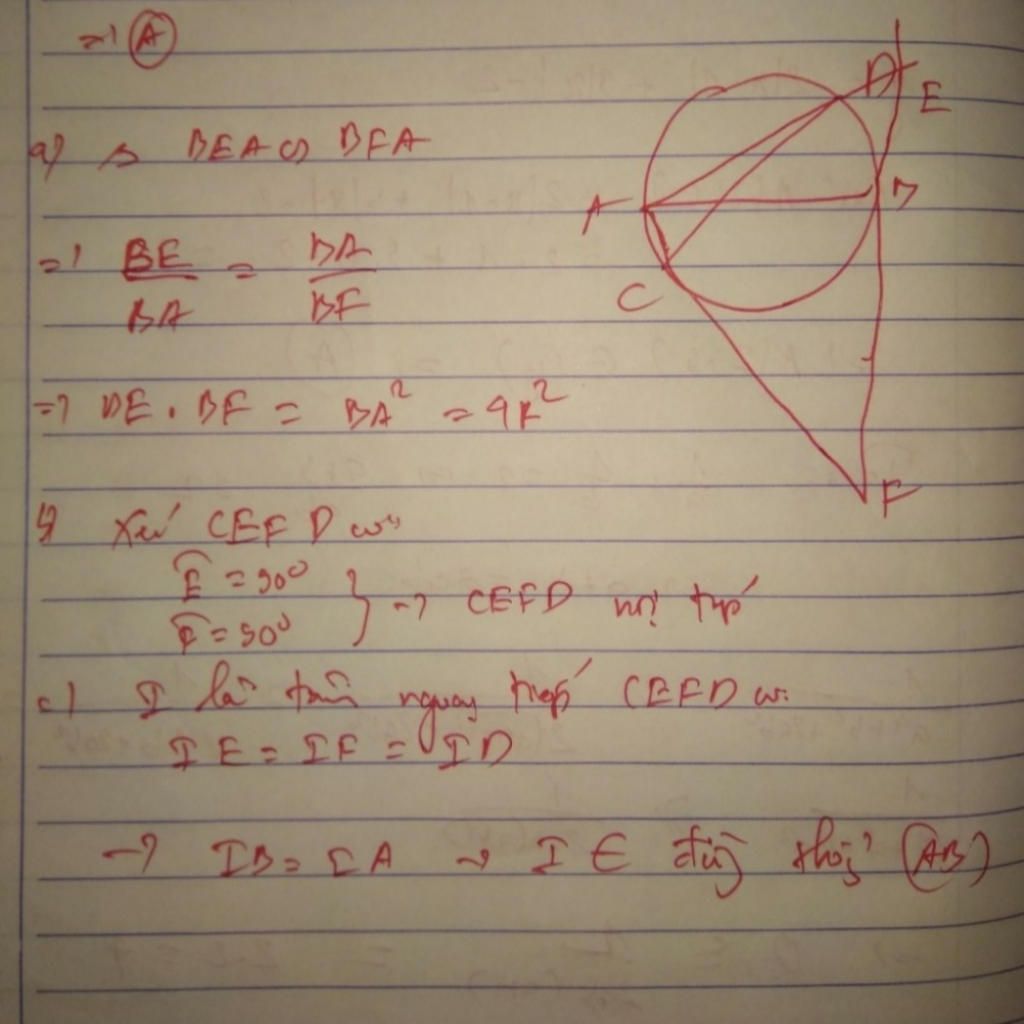 => (A)
a) Δ BEA ∽ BFA
=> BE/BA = BA/BF
=> BE . BF = BA² = 4R²
b) Xét CEFD có
Ê = 90°
F̂ = 90°
} -> CEFD nội tiếp
c) I là tâm ngoại tiếp CEFD có:
IE = IF = ID
-> IB = IA -> I ∈ đường thẳng (AB)
D
E
A
B
C
F